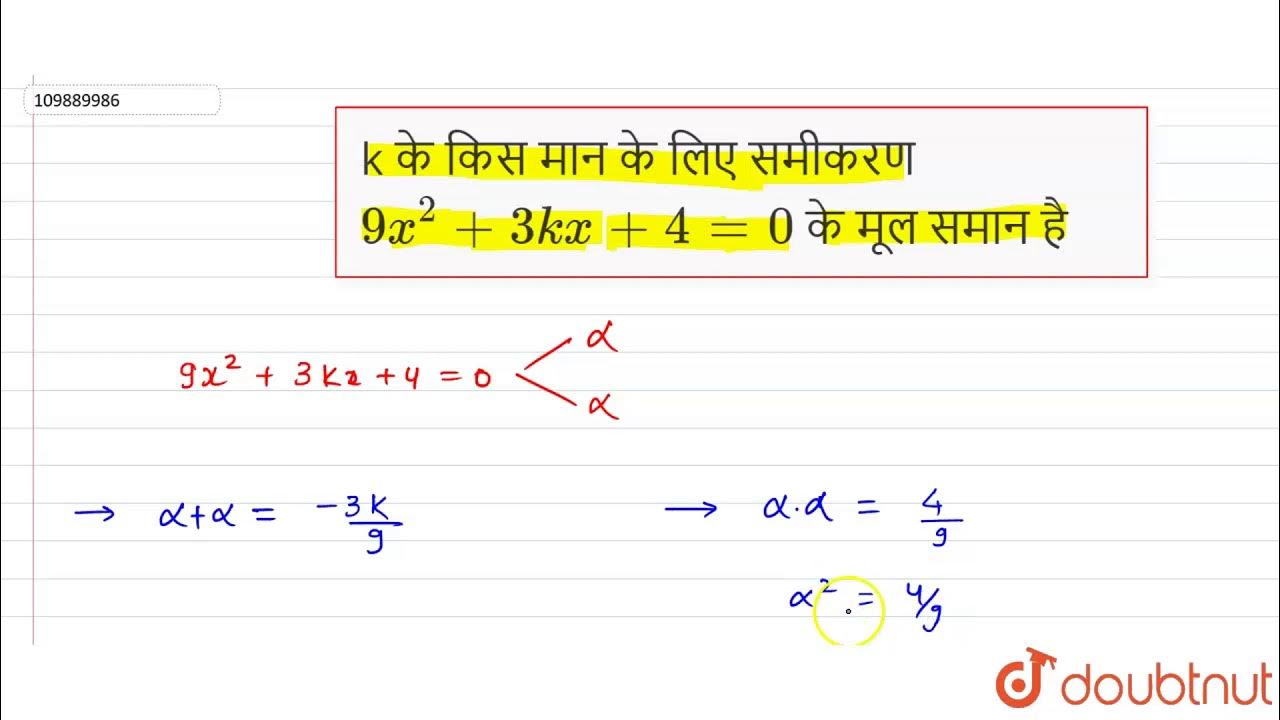 109889986
k के किस मान के लिए समीकरण
9x² + 3kx + 4 = 0 के मूल समान है
α
9x² + 3kx + 4 = 0
α
→ α + α = -3k/9
→ α.α = 4/9
α² = 4/9
doubtnut